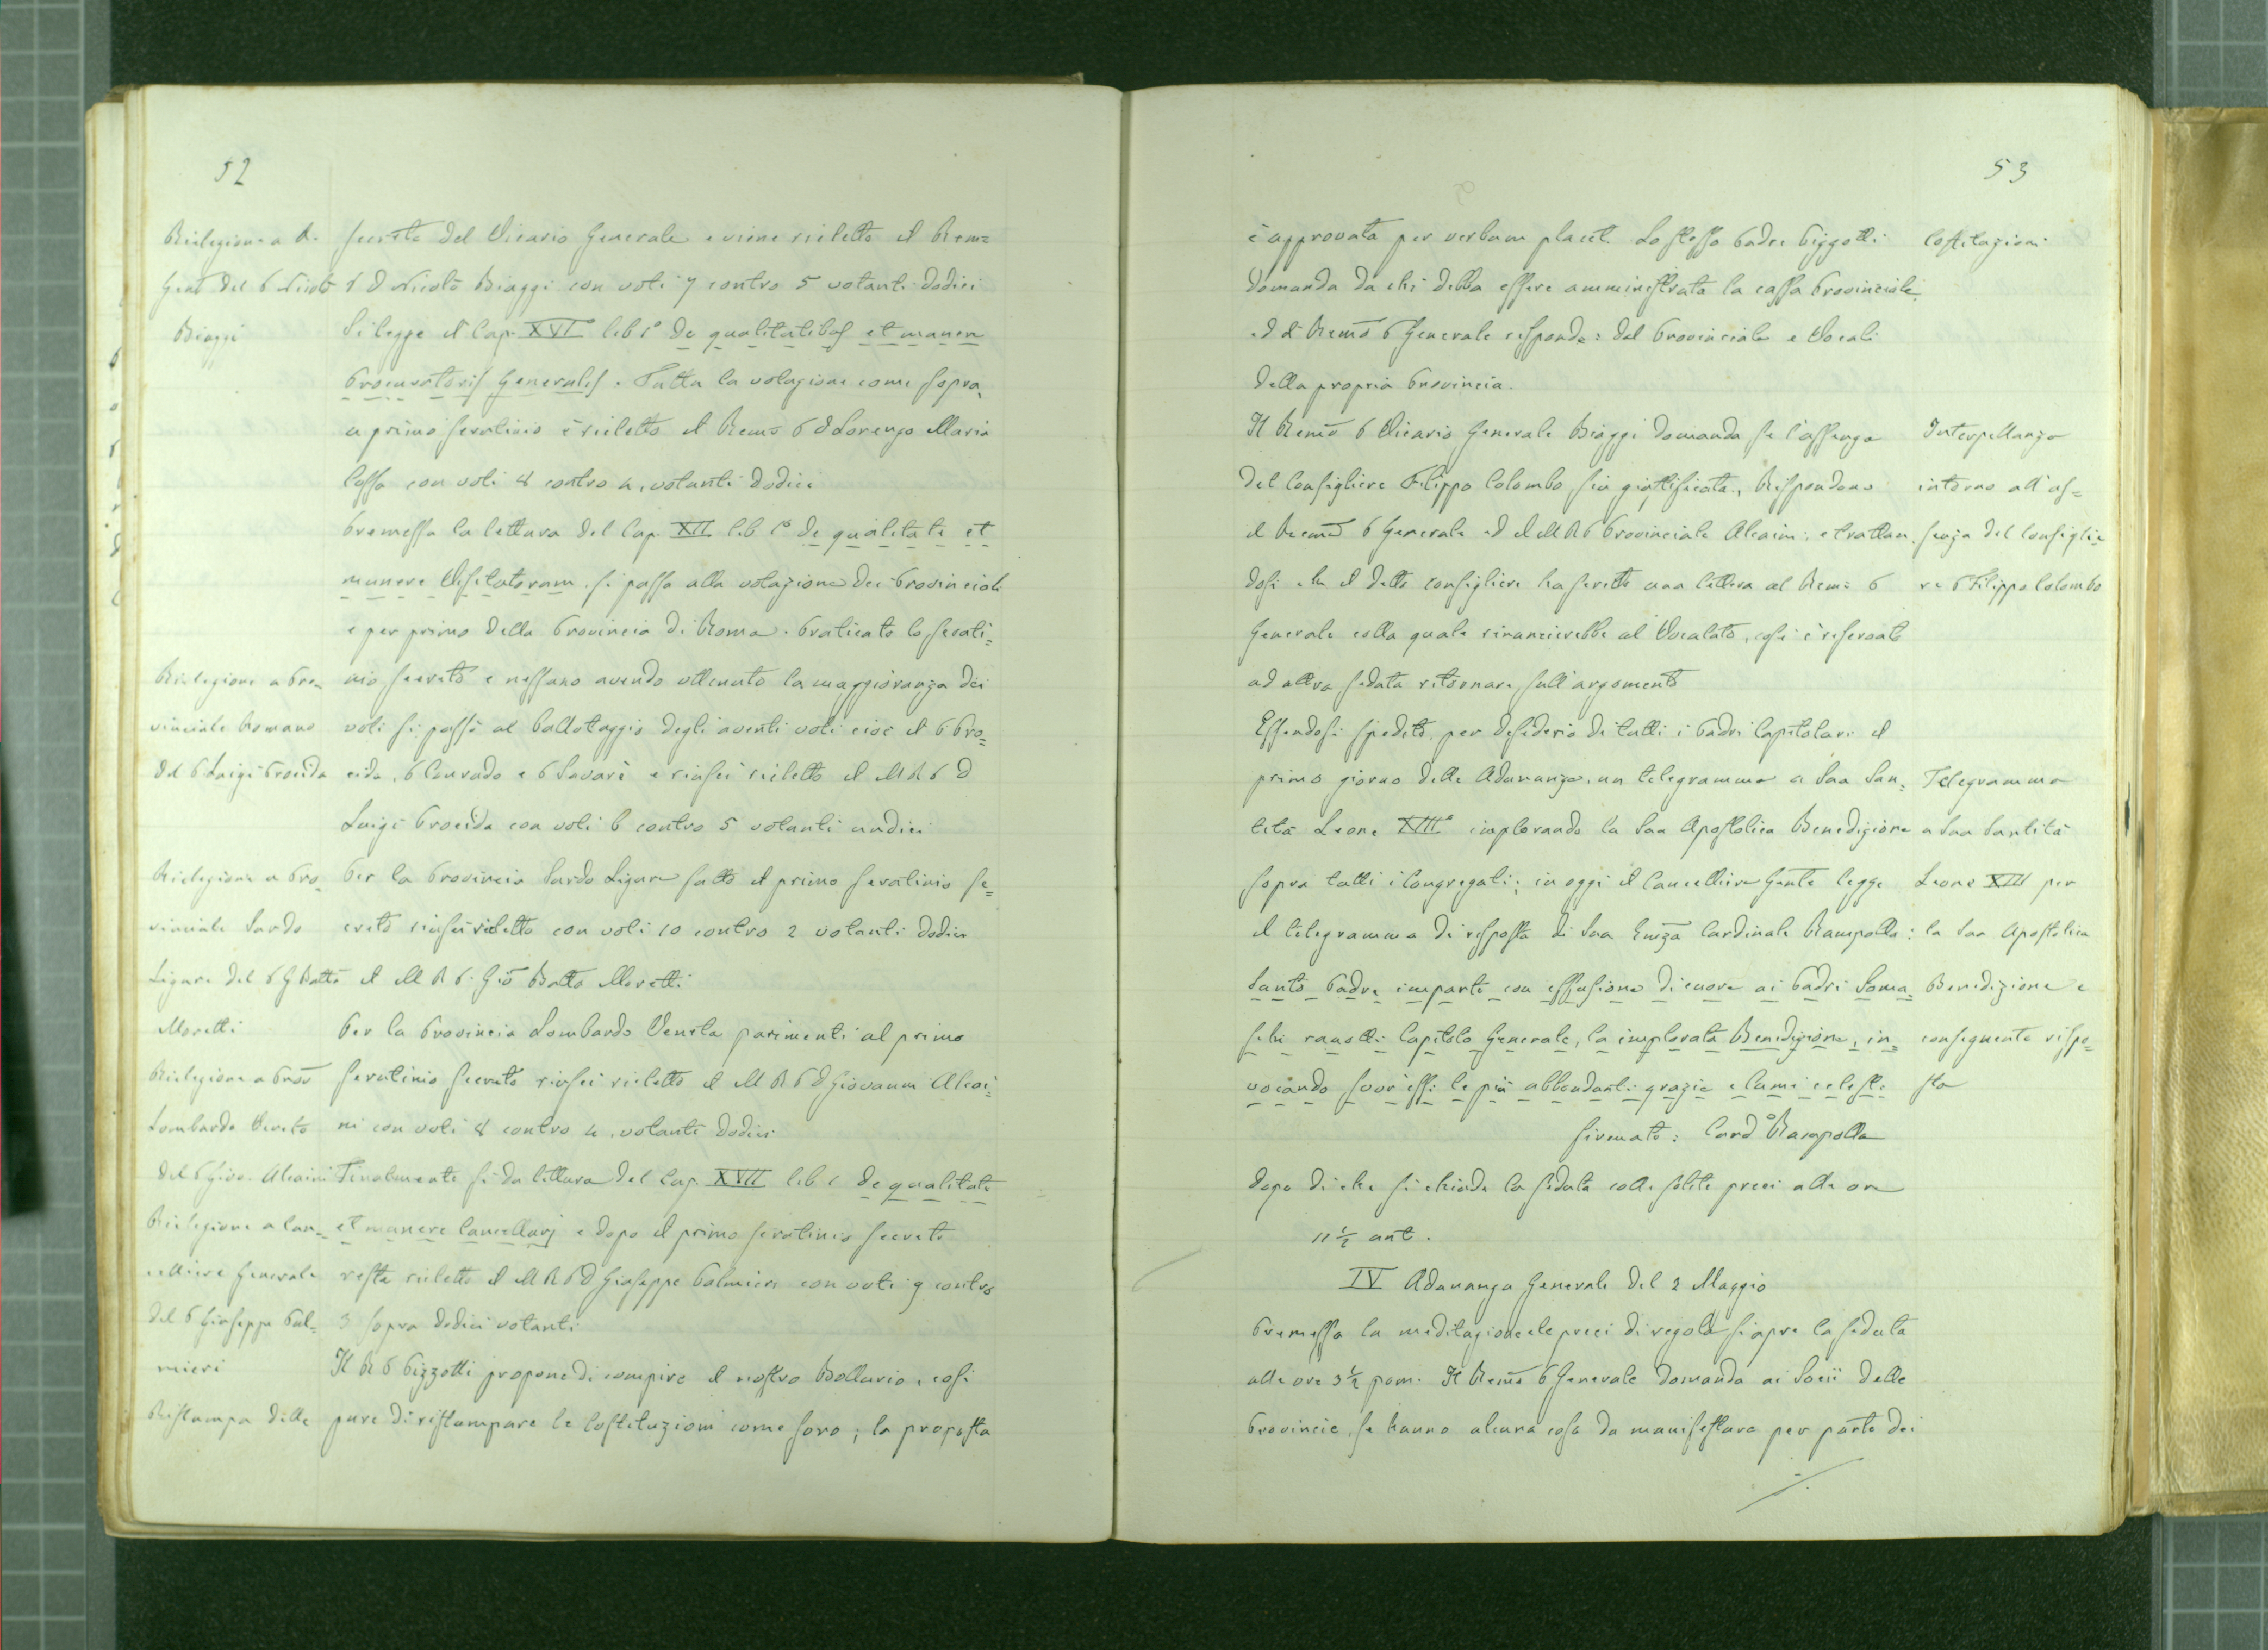 52
Rielezione a V.
Genle del P Nicolò
Biaggi
Rielezione a Pro=
vinciale Romano
del P Luigi Procida
Rielezione a Pro=
vinciale Sardo
Ligure del P G Batta
Moretti
Rielezione a Prov
Lombardo Veneto
del P Giov. Alcaini
Rielezione a Can=
celliere Generale
del P Giuseppe Pal=
mieri
Ristampa delle
secreta del Vicario Generale e viene rieletto il Remo
P D Nicolò Biaggi con voti 7 contro 5 votanti dodici
Si legge il Cap. XVI° lib 1° de qualitatibus et munere
Procuratoris Generalis. Fatta la votazione come sopra,
a primo scrutinio è rieletto il Remo P D Lorenzo Maria
Cossa con voti 8 contro 4, votanti dodici
Premessa la lettura del Cap. XII lib 1° de qualitate et
munere Visitatorum si passa alla votazione dei Provinciali
e per primo della Provincia di Roma. Praticato lo scruti=
nio secreto e nessuno avendo ottenuto la maggioranza dei
voti si passò al ballotaggio degli aventi voti cioè il P Pro=
cida, P Conrado e P Savarè e riuscì rieletto il M R P D
Luigi Procida con voti 6 contro 5 votanti undici
Per la Provincia Sardo Ligure fatto il primo scrutinio se=
creto riuscì rieletto con voti 10 contro 2 votanti dodici
il M R P. Gio Batta Moretti
Per la Provincia Lombardo Veneta parimenti al primo
scrutinio secreto riuscì rieletto il M R P D Giovanni Alcai=
ni con voti 8 contro 4, votanti dodici
Finalmente si da lettura del Cap. XVII lib 1 de qualitate
et munere Cancellarj e dopo il primo scrutinio secreto
resta rieletto il M R P D Giuseppe Palmieri con voti 9 contro
3 sopra dodici votanti
Il R P Pizzotti propone di compire il nostro Bollario, così
pure di ristampare le Costituzioni come sono; la proposta
53
è approvata per verbum placet. Lo stesso Padre Pizzotti
domanda da chi debba essere amministrata la cassa Provinciale,
ed il Remo P Generale risponde: dal Provinciale e Vocali
della propria Provincia.
Il Remo P Vicario Generale Biaggi domanda se l'assenza
del Consigliere Filippo Colombo sia giustificata, Rispondono
il Remo P Generale ed il M R P Provinciale Alcaini; e trattan=
dosi che il detto consigliere ha scritto una lettera al Remo P
Generale colla quale rinuncierebbe al Vocalato, così è riservato
ad altra seduta ritornare sull'argomento
Essendosi spedito, per desiderio di tutti i Padri Capitolari il
primo giorno delle Adunanze, un telegramma a Sua San=
tità Leone XIII° implorando la Sua Apostolica Benedizione
sopra tutti i Congregati; in oggi il Cancelliere Genle legge
il telegramma di risposta di Sua Emza Cardinale Rampolla:
Santo Padre imparte con effusione di cuore ai Padri Soma=
schi raccolti Capitolo Generale, la implorata Benedizione, in=
vocando sovr'essi le più abbondanti grazie e lumi celesti
firmato: Card Rampolla
dopo di che si chiude la seduta colle solite preci alle ore
11 1/2 ant.
IV Adunanza Generale del 2 Maggio
Premessa la meditazione e le preci di regola si apre la seduta
alle ore 3 1/2 pom. Il Remo P Generale domanda ai Socii delle
Provincie, se hanno alcuna cosa da manifestare per parte dei
Costituzioni
Interpellanza
intorno all'as=
senza del Consiglie=
re P Filippo Colombo
Telegramma
a Sua Santità
Leone XIII per
la Sua Apostolica
Benedizione e
conseguente rispo=
sta